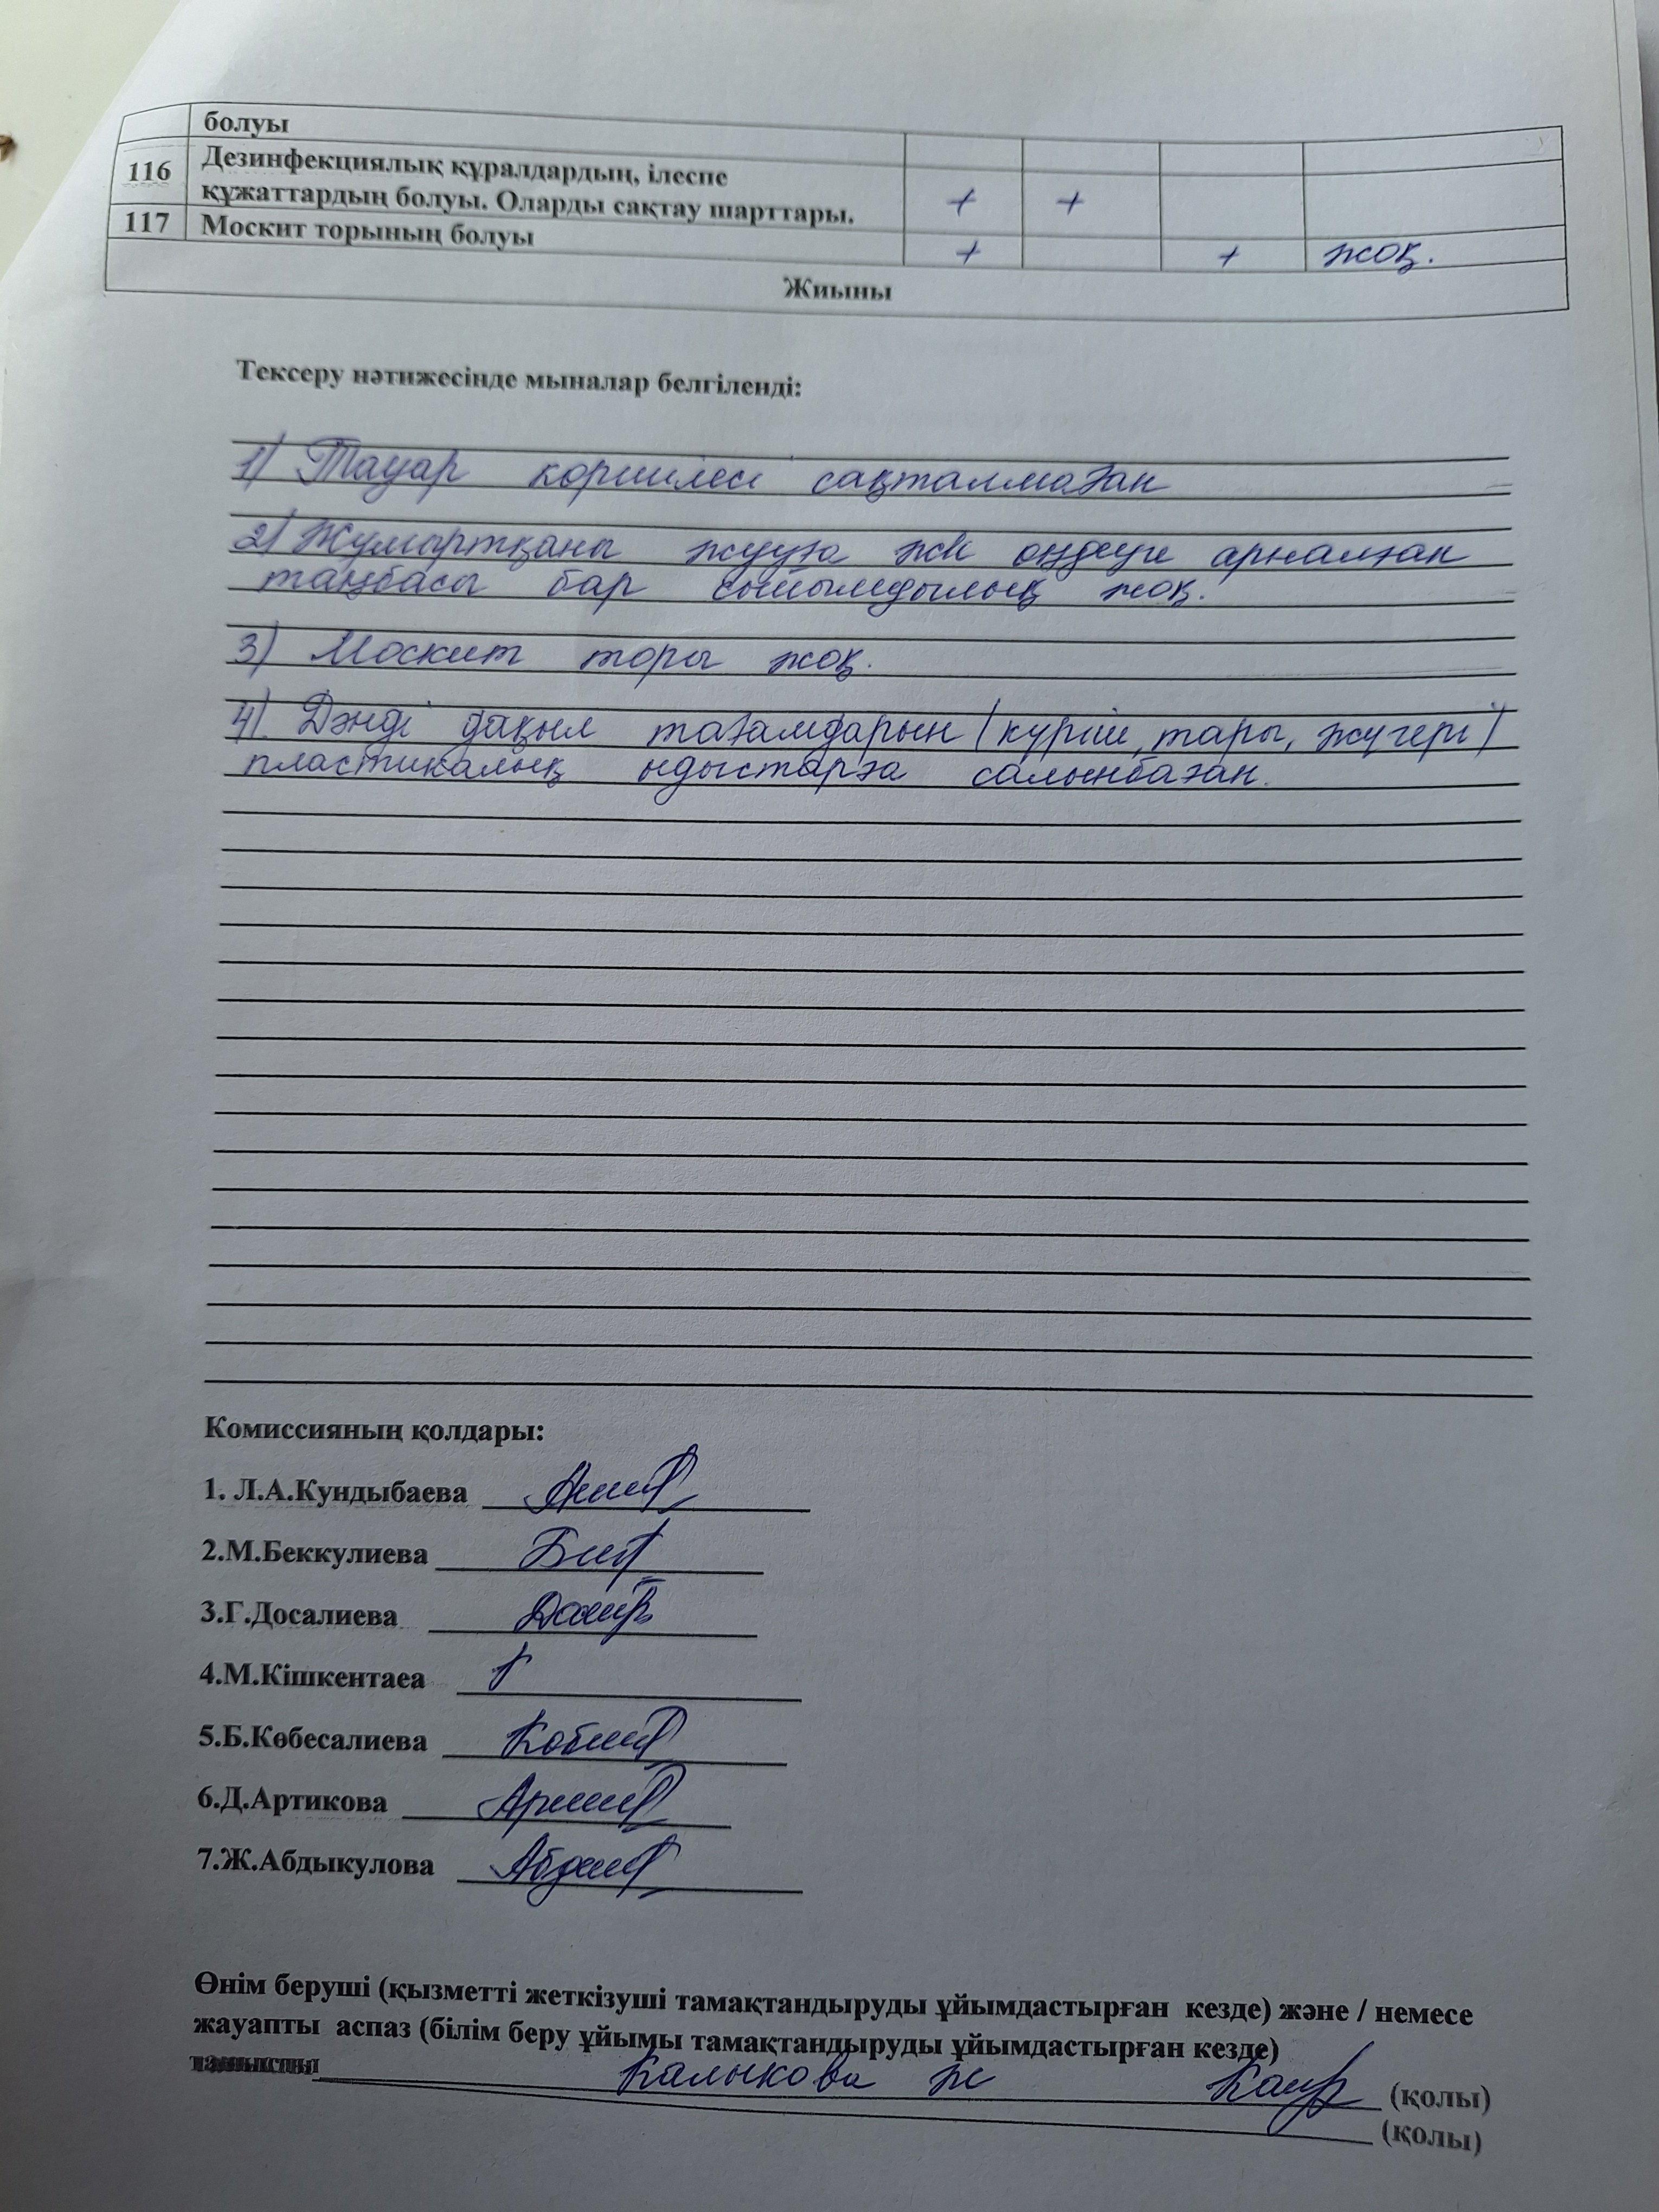 болуы
116 Дезинфекциялық құралдардың, ілеспе
құжаттардың болуы. Оларды сақтау шарттары. + +
117 Москит торының болуы + + жоқ.
Жиыны
Тексеру нәтижесінде мыналар белгіленді:
1) Тауар көршілесі сақталмаған
2) Жұмыртқаны жууға және өңдеуге арналған
таңбасы бар сыйымдылық жоқ.
3) Москит торы жоқ.
4). Дәнді дақыл тағамдарын (күріш, тары, жүгері)
пластикалық ыдыстарға салынбаған.
Комиссияның қолдары:
1. Л.А.Кундыбаева
2.М.Беккулиева
3.Г.Досалиева
4.М.Кішкентаеа
5.Б.Көбесалиева
6.Д.Артикова
7.Ж.Абдыкулова
Өнім беруші (қызметті жеткізуші тамақтандыруды ұйымдастырған кезде) және / немесе
жауапты аспаз (білім беру ұйымы тамақтандыруды ұйымдастырған кезде)
Калыкова Ж (қолы)
(қолы)